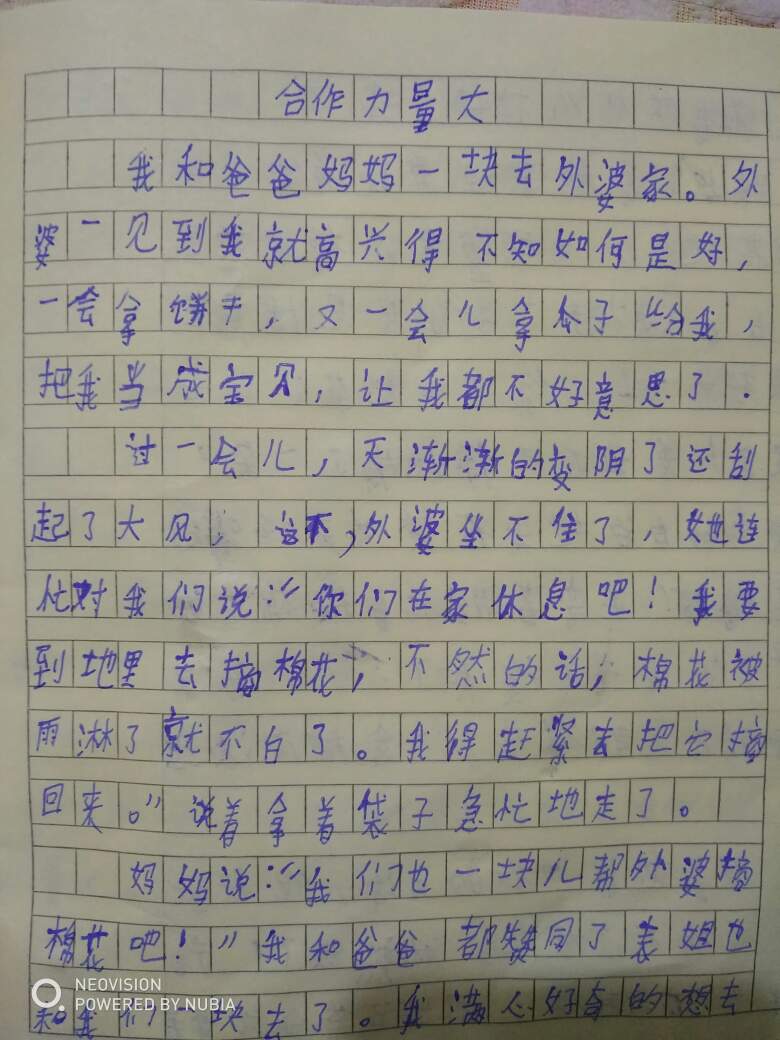 合作力量大
我和爸爸妈妈一块去外婆家。外
婆一见到我就高兴得不知如何是好，
一会拿饼干，又一会儿拿瓜子给我，
把我当成宝贝，让我都不好意思了．
过一会儿，天渐渐的变阴了还刮
起了大风，这不，外婆坐不住了，她连
忙对我们说：“你们在家休息吧！我要
到地里去摘棉花，不然的话，棉花被
雨淋了就不白了。我得赶紧去把它摘
回来。”说着拿着袋子急忙地走了。
妈妈说：“我们也一块儿帮外婆摘
棉花吧！”我和爸爸都赞同了表姐也
和我们一块去了。我满心好奇的想去
NEOVISION
POWERED BY NUBIA